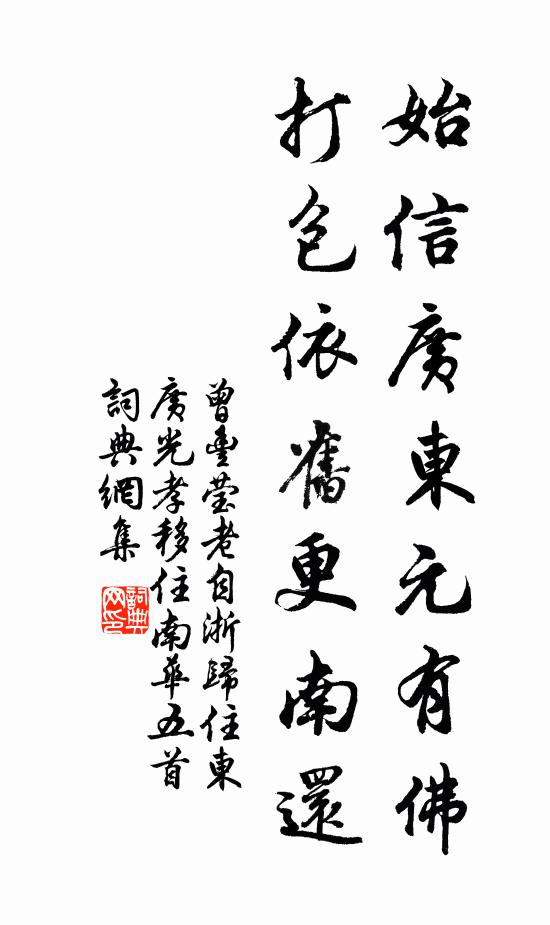 始信廣東元有佛
打包依舊更南還
曾豐瑩老自浙歸住東
廣光孝移住南華五首
詞典網集
詞典
网印